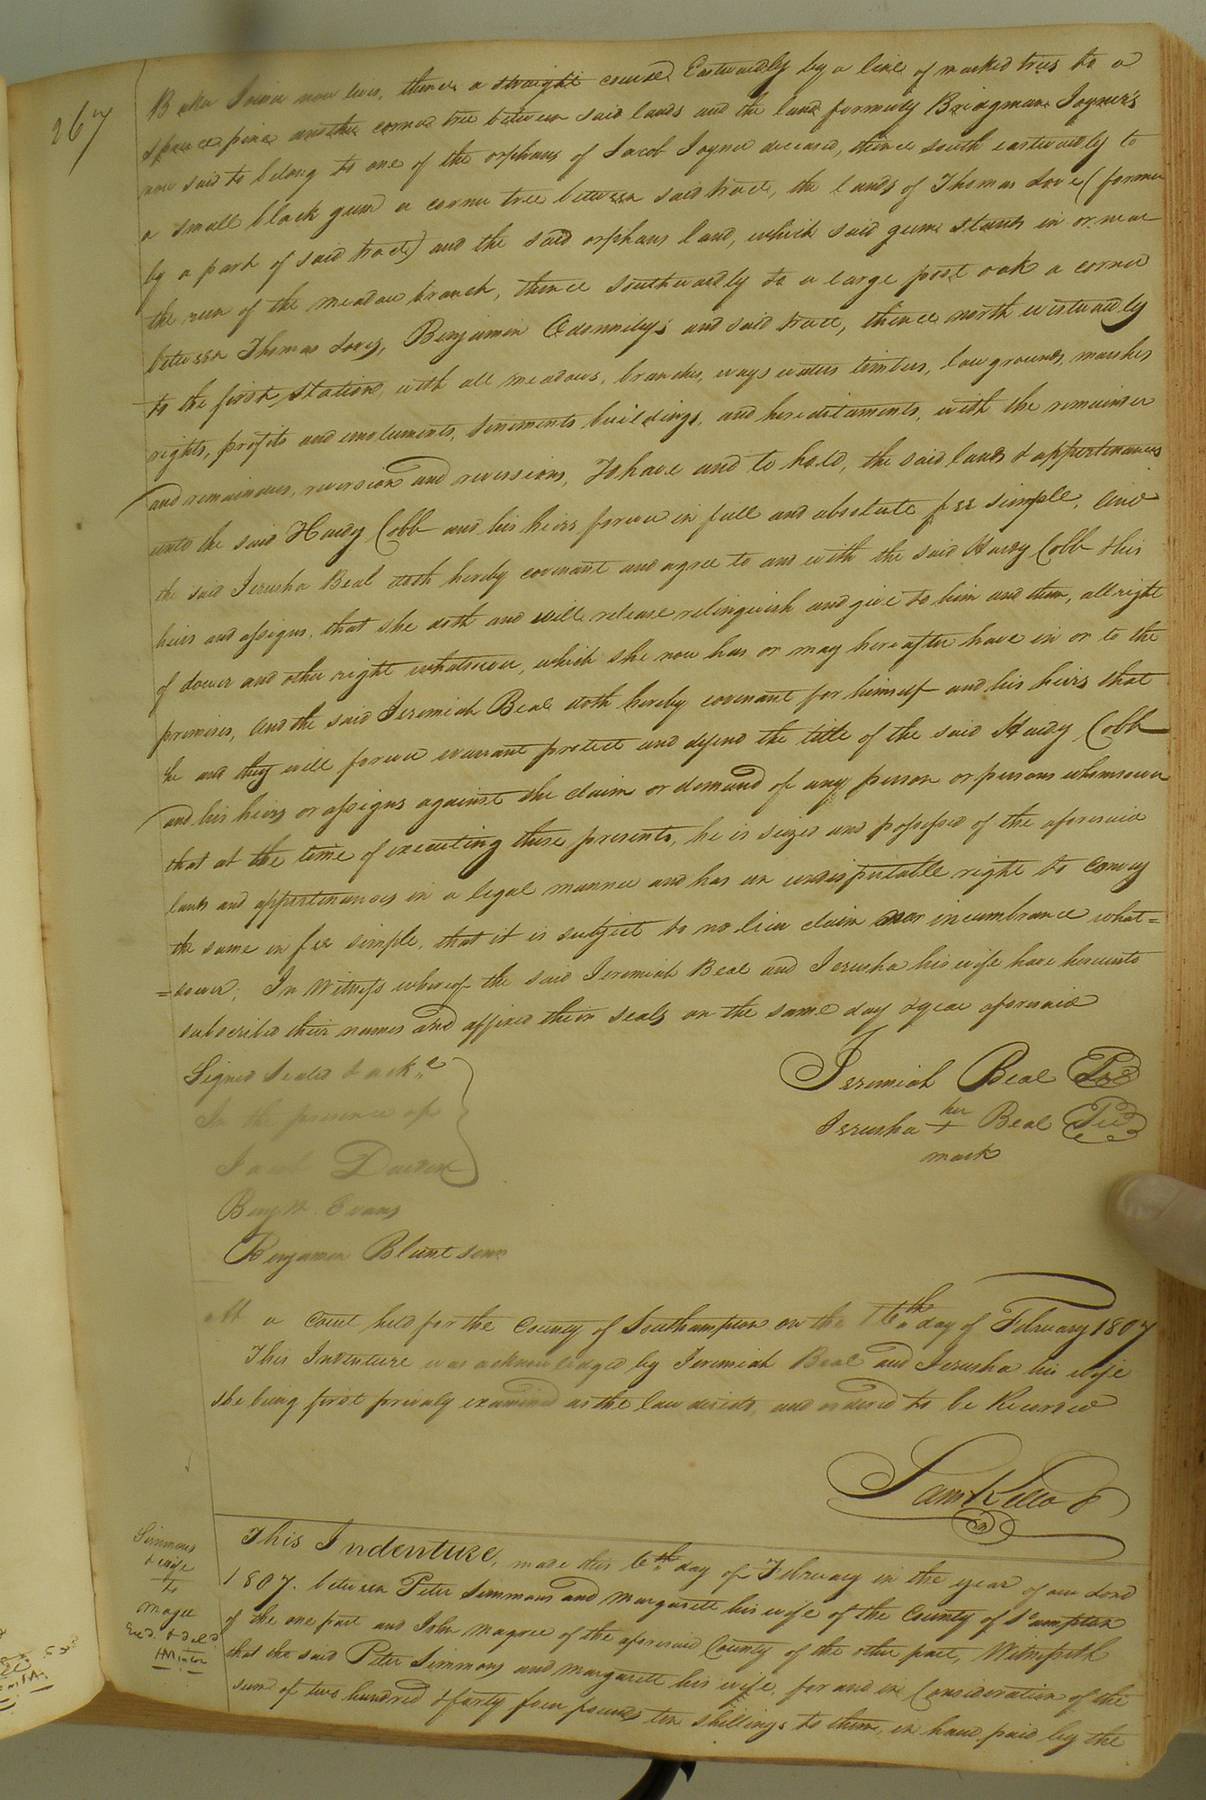 267
Baker Joiner now lives, thence a straight course Eastwardly by a line of marked trees to a
spruce pine another corner tree between said lands and the land formerly Bridgman Joyner's
now said to belong to one of the orphans of Jacob Joyner deceased, thence south eastwardly to
a small black gum a corner tree between said tract, the lands of Thomas Love (former
ly a part of said tract) and the said orphans land, which said gum stands in or near
the run of the meadow branch, thence southwardly to a large post oak a corner
between Thomas Loves, Benjamin and said tract, thence north westwardly
to the first station, with all meadows, branches, ways waters timbers, low grounds, marshes
rights, profits and emoluments, tenements buildings, and hereditaments, with the remainder
and remainders, reversion and reversions, To have and to hold, the said lands & appertenances
unto the said Hardy Cobb and his heirs forever in full and absolute fee simple, And
the said Jerusha Beal doth hereby covenant and agree to and with the said Hardy Cobb & his
heirs and assigns, that she doth and will release relinquish and give to him and them, all right
of dower and other right whatsoever, which she now has or may hereafter have in or to the
premises, And the said Jeremiah Beal doth hereby covenant for himself and his heirs that
he and they will forever warrant protect and defend the title of the said Hardy Cobb
and his heirs or assigns against the claim or demand of any person or persons whomsoever
that at the time of executing these presents, he is seized and possessed of the aforesaid
lands and appertenances in a legal manner and has an undisputable right to convey
the same in fee simple, that it is subject to no lien claim nor incumbrance what=
=soever; In Witness whereof the said Jeremiah Beal and Jerusha his wife have hereunto
subscribed their names and affixed their seals on the same day & year aforesaid
Signed Sealed & ackd.
In the presence of
Jacob Darden
Benj. W. Evans
Benjamin Blunt senr
Jeremiah Beal
Jerusha her + Beal
mark
At a Court held for the County of Southampton on the 16th day of February 1807
This Indenture was acknowledged by Jeremiah Beal and Jerusha his wife
she being first privily examined as the law directs, and ordered to be Recorded
Sam Kello
Simmons
& wife
to
Magee
Exd. & deld.
This Indenture, made this 6th day of February in the year of our Lord
1807. between Peter Simmons and Margarett his wife of the County of S'ampton
of the one part and John Magee of the aforesaid County of the other part, Witnesseth
that the said Peter Simmons and Margarett his wife, for and in Consideration of the
sum of two hundred & forty four pounds ten shillings to them, in hand paid by the